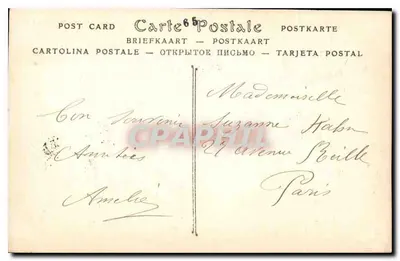 POST CARD Carte Postale POSTKARTE
65
BRIEFKAART — POSTKAART
CARTOLINA POSTALE — ОТКРЫТОК ПИСЬМО — TARJETA POSTAL
Bon Souvenir
Amitiés
Amélie
Mademoiselle
Suzanne Kahn
21 avenue Reille
Paris
CPARAMA